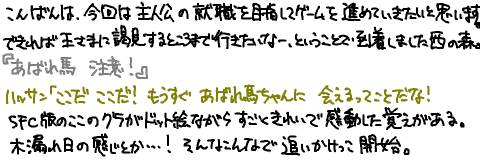 こんばんは、今回は主人公の就職を目指してゲームを進めていきたいと思います。
できれば王さまに謁見するところまで行きたいなー、ということで到着しました西の森。
『あばれ馬 注意！』
ハッサン「ここだ ここだ！もうすぐ あばれ馬ちゃんに 会えるってことだな！
SFC版のここのグラがドット絵ながら すごときれいで感動した覚えがある。
木漏れ日の感じとか…！そんなこんなで 追いかけっこ開始。